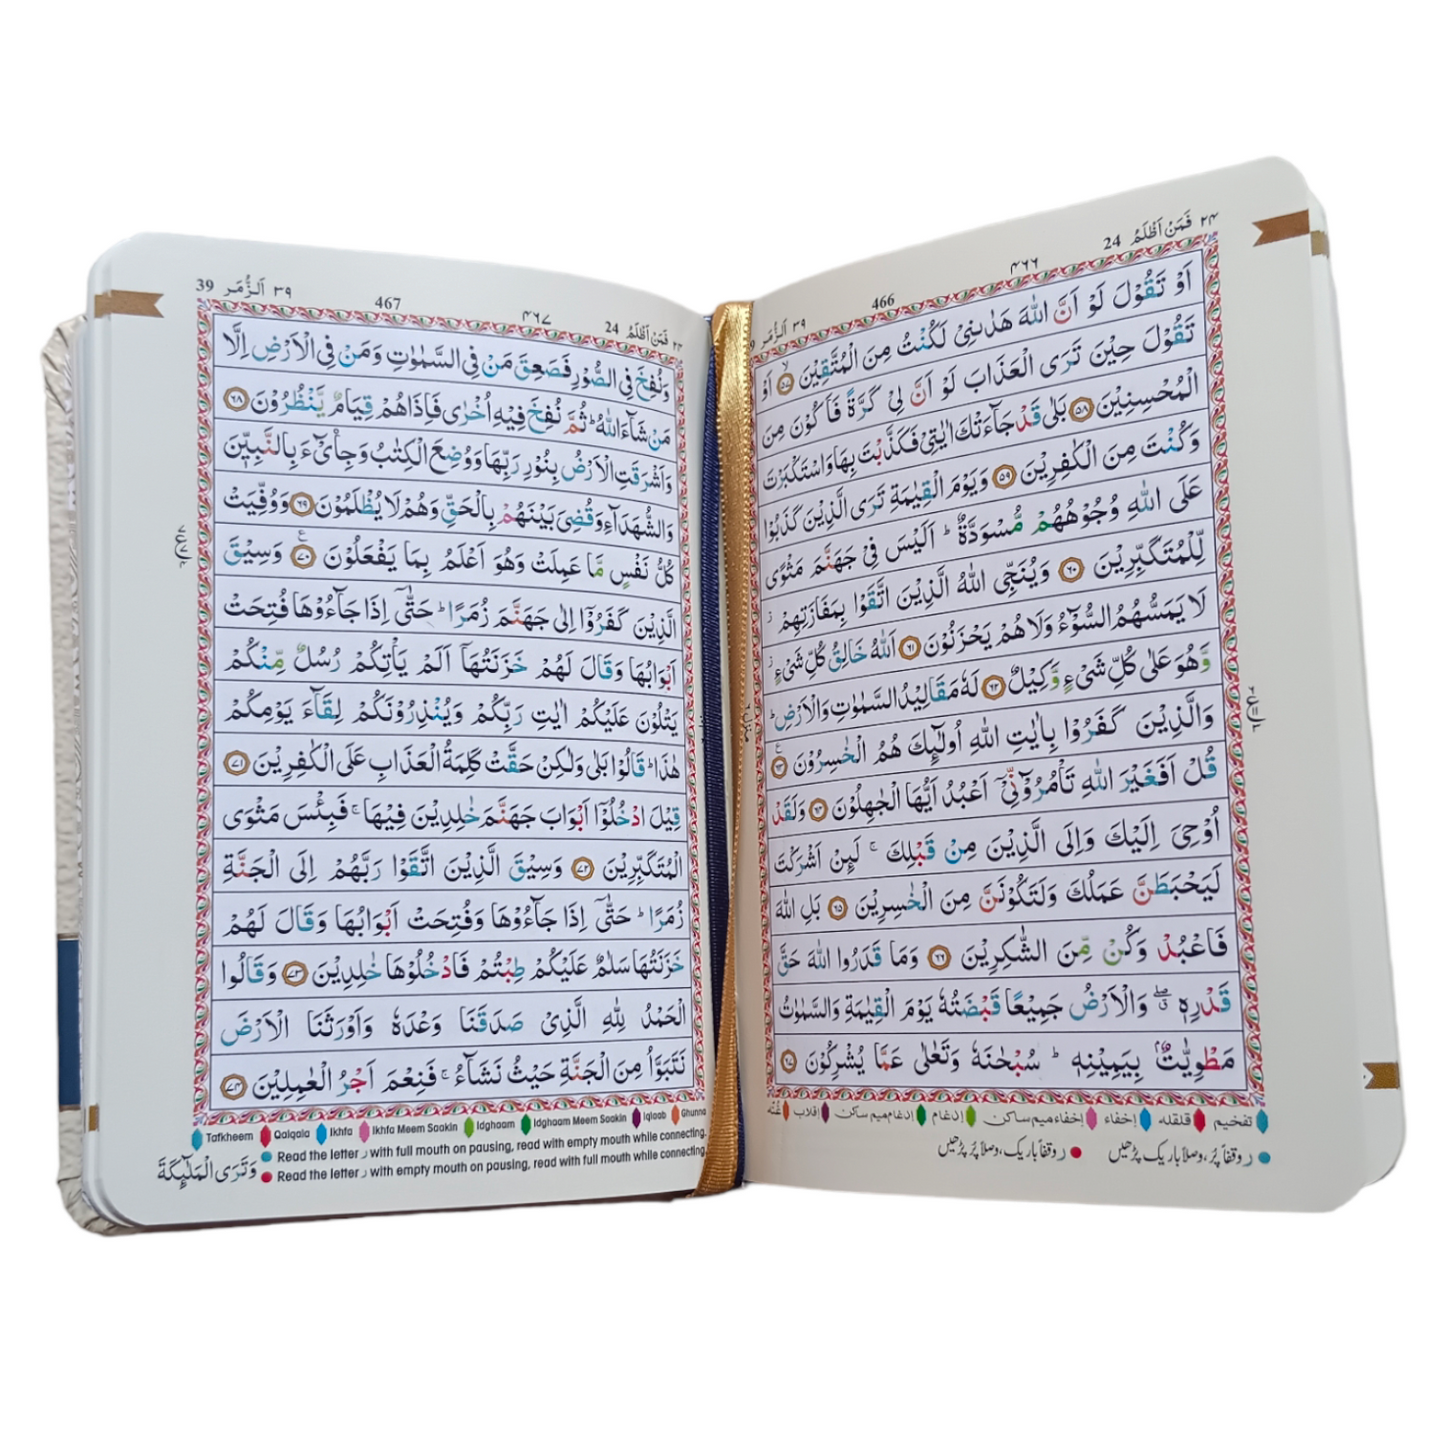 ۲۴ فَمَنْ اَظْلَمُ 24
۴۶۶
466
۳۹ اَلزُّمَر
اَوْ تَقُوْلَ لَوْ اَنَّ اللّٰهَ هَدٰىنِىْ لَكُنْتُ مِنَ الْمُتَّقِيْنَ ۙ‏﴿۵۷﴾ اَوْ
تَقُوْلَ حِيْنَ تَرَى الْعَذَابَ لَوْ اَنَّ لِىْ كَرَّةً فَاَكُوْنَ مِنَ
الْمُحْسِنِيْنَ ﴿۵۸﴾ بَلٰى قَدْ جَآءَتْكَ اٰيٰتِىْ فَكَذَّبْتَ بِهَا وَاسْتَكْبَرْتَ
وَكُنْتَ مِنَ الْكٰفِرِيْنَ ﴿۵۹﴾ وَيَوْمَ الْقِيٰمَةِ تَرَى الَّذِيْنَ كَذَبُوْا
عَلَى اللّٰهِ وُجُوْهُهُمْ مُّسْوَدَّةٌ ؕ اَلَيْسَ فِىْ جَهَنَّمَ مَثْوًى
لِّلْمُتَكَبِّرِيْنَ ﴿۶۰﴾ وَيُنَجِّى اللّٰهُ الَّذِيْنَ اتَّقَوْا بِمَفَازَتِهِمْ ز
لَا يَمَسُّهُمُ السُّوْٓءُ وَلَا هُمْ يَحْزَنُوْنَ ﴿۶۱﴾ اَللّٰهُ خَالِقُ كُلِّ شَىْءٍ ز
وَّهُوَ عَلٰى كُلِّ شَىْءٍ وَّكِيْلٌ ﴿۶۲﴾ لَهٗ مَقَالِيْدُ السَّمٰوٰتِ وَالْاَرْضِ ؕ
وَالَّذِيْنَ كَفَرُوْا بِاٰيٰتِ اللّٰهِ اُولٰٓٮِٕكَ هُمُ الْخٰسِرُوْنَ ﴿۶۳﴾ ع
قُلْ اَفَغَيْرَ اللّٰهِ تَاْمُرُوْٓنِّىْٓ اَعْبُدُ اَيُّهَا الْجٰهِلُوْنَ ﴿۶۴﴾ وَلَقَدْ
اُوْحِىَ اِلَيْكَ وَاِلَى الَّذِيْنَ مِنْ قَبْلِكَ ۚ لَٮِٕنْ اَشْرَكْتَ
لَيَحْبَطَنَّ عَمَلُكَ وَلَتَكُوْنَنَّ مِنَ الْخٰسِرِيْنَ ﴿۶۵﴾ بَلِ اللّٰهَ
فَاعْبُدْ وَكُنْ مِّنَ الشّٰكِرِيْنَ ﴿۶۶﴾ وَمَا قَدَرُوا اللّٰهَ حَقَّ
قَدْرِهٖ ۖ وَالْاَرْضُ جَمِيْعًا قَبْضَتُهٗ يَوْمَ الْقِيٰمَةِ وَالسَّمٰوٰتُ
مَطْوِيّٰتٌۢ بِيَمِيْنِهٖ ؕ سُبْحٰنَهٗ وَتَعٰلٰى عَمَّا يُشْرِكُوْنَ ﴿۶۷﴾
تفخیم قلقله إخفاء إخفاء میم ساکن إدغام إدغام میم ساکن اقلاب غُنّه
ر وقفاً پُر، وصلاً باریک پڑھیں ر وقفاً باریک، وصلاً پُر پڑھیں
39 ۳۹ اَلزُّمَر
467
۴۶۷
۲۴ فَمَنْ اَظْلَمُ 24
وَنُفِخَ فِى الصُّوْرِ فَصَعِقَ مَنْ فِى السَّمٰوٰتِ وَمَنْ فِى الْاَرْضِ اِلَّا
مَنْ شَآءَ اللّٰهُ ؕ ثُمَّ نُفِخَ فِيْهِ اُخْرٰى فَاِذَا هُمْ قِيَامٌ يَّنْظُرُوْنَ ﴿۶۸﴾
وَاَشْرَقَتِ الْاَرْضُ بِنُوْرِ رَبِّهَا وَوُضِعَ الْكِتٰبُ وَجِاىْٓءَ بِالنَّبِيّٖنَ
وَالشُّهَدَآءِ وَقُضِىَ بَيْنَهُمْ بِالْحَقِّ وَهُمْ لَا يُظْلَمُوْنَ ﴿۶۹﴾ وَوُفِّيَتْ
كُلُّ نَفْسٍ مَّا عَمِلَتْ وَهُوَ اَعْلَمُ بِمَا يَفْعَلُوْنَ ﴿۷۰﴾ ع وَسِيْقَ
الَّذِيْنَ كَفَرُوْٓا اِلٰى جَهَنَّمَ زُمَرًا ؕ حَتّٰٓى اِذَا جَآءُوْهَا فُتِحَتْ
اَبْوَابُهَا وَقَالَ لَهُمْ خَزَنَتُهَآ اَلَمْ يَاْتِكُمْ رُسُلٌ مِّنْكُمْ
يَتْلُوْنَ عَلَيْكُمْ اٰيٰتِ رَبِّكُمْ وَيُنْذِرُوْنَكُمْ لِقَآءَ يَوْمِكُمْ
هٰذَا ؕ قَالُوْا بَلٰى وَلٰكِنْ حَقَّتْ كَلِمَةُ الْعَذَابِ عَلَى الْكٰفِرِيْنَ ﴿۷۱﴾
قِيْلَ ادْخُلُوْٓا اَبْوَابَ جَهَنَّمَ خٰلِدِيْنَ فِيْهَا ۚ فَبِئْسَ مَثْوَى
الْمُتَكَبِّرِيْنَ ﴿۷۲﴾ وَسِيْقَ الَّذِيْنَ اتَّقَوْا رَبَّهُمْ اِلَى الْجَنَّةِ
زُمَرًا ؕ حَتّٰٓى اِذَا جَآءُوْهَا وَفُتِحَتْ اَبْوَابُهَا وَقَالَ لَهُمْ
خَزَنَتُهَا سَلٰمٌ عَلَيْكُمْ طِبْتُمْ فَادْخُلُوْهَا خٰلِدِيْنَ ﴿۷۳﴾ وَقَالُوا
الْحَمْدُ لِلّٰهِ الَّذِىْ صَدَقَنَا وَعْدَهٗ وَاَوْرَثَنَا الْاَرْضَ
نَتَبَوَّاُ مِنَ الْجَنَّةِ حَيْثُ نَشَآءُ ۚ فَنِعْمَ اَجْرُ الْعٰمِلِيْنَ ﴿۷۴﴾
Tafkheem Qalqala Ikhfa Ikhfa Meem Saakin Idghaam Idghaam Meem Saakin Iqlaab Ghunna
Read the letter ر with full mouth on pausing, read with empty mouth while connecting.
Read the letter ر with empty mouth on pausing, read with full mouth while connecting.
وَتَرَى الْمَلٰٓٮِٕكَةَ